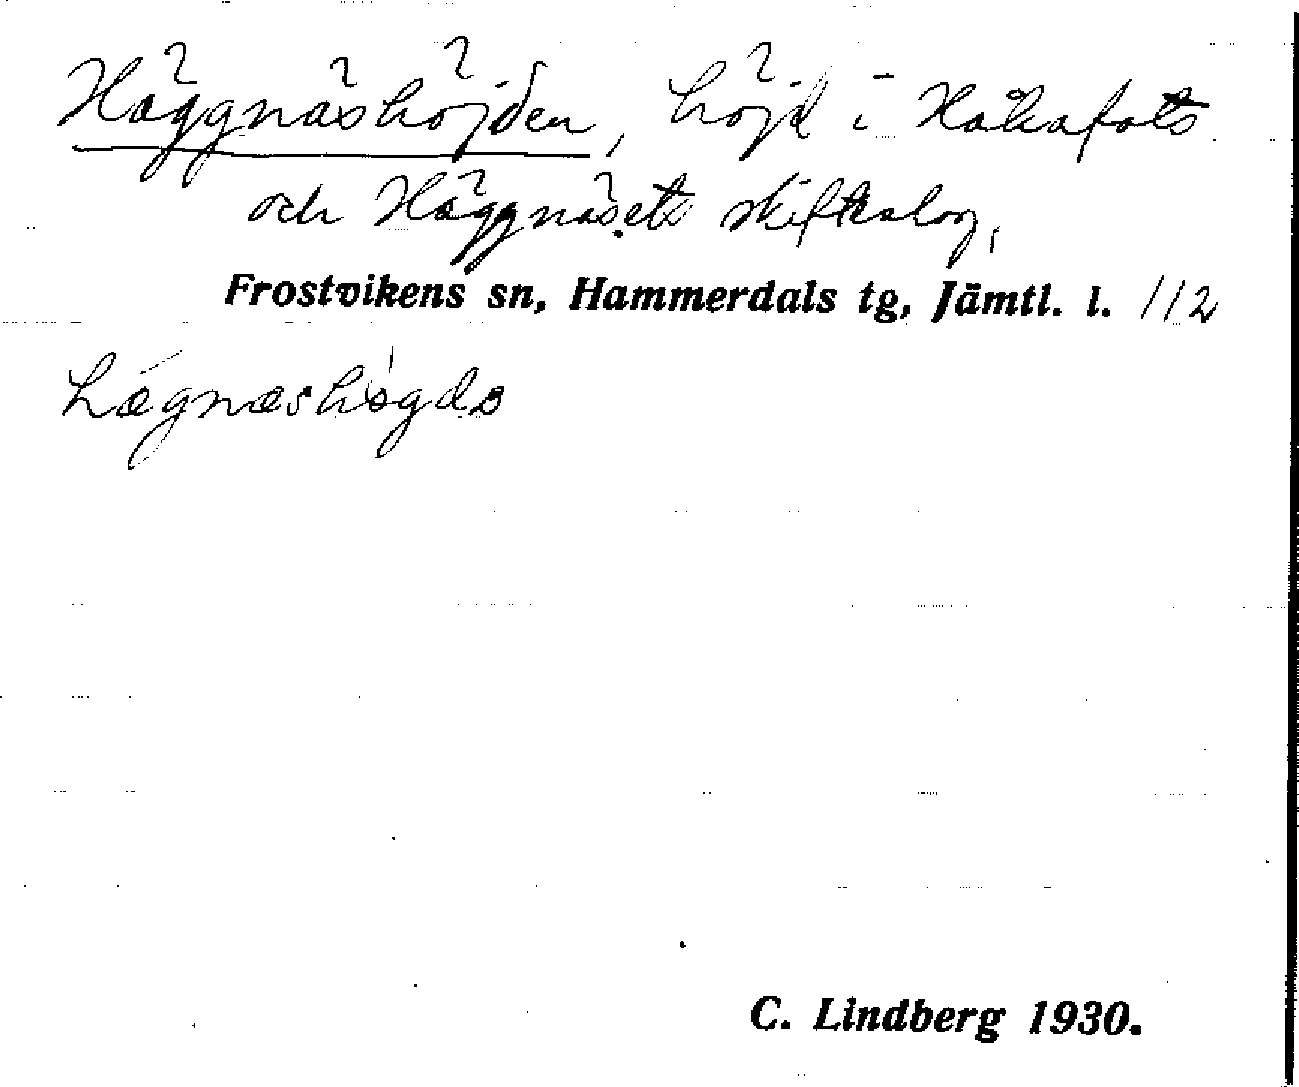 Häggnäshöjden, höjd i Håkafots
och Häggnäsets skifteslag,
Frostvikens sn, Hammerdals tg, Jämtl. l. 112
hægnæshøgda
C. Lindberg 1930.